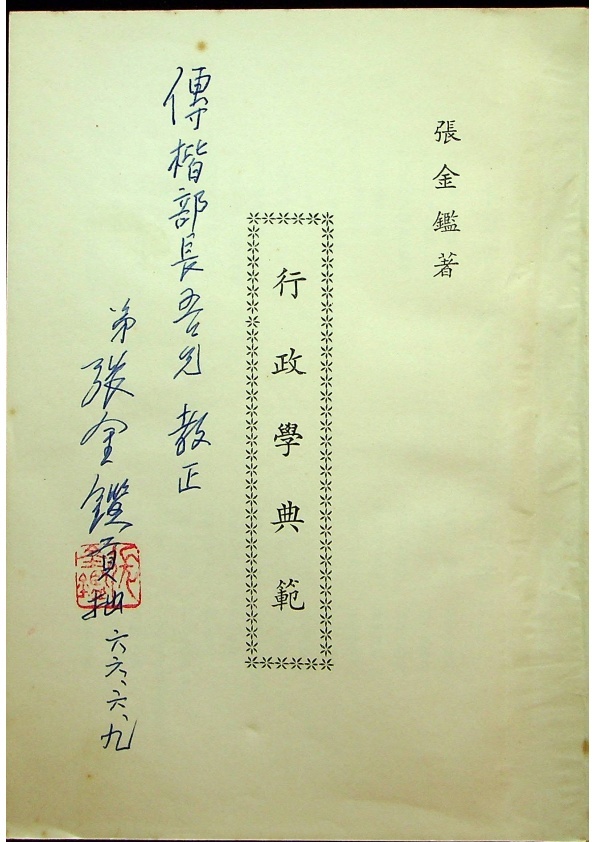 張金鑑著
行政學典範
傳楷部長吾兄 教正
弟張金鑑貢拙
六六、六、九